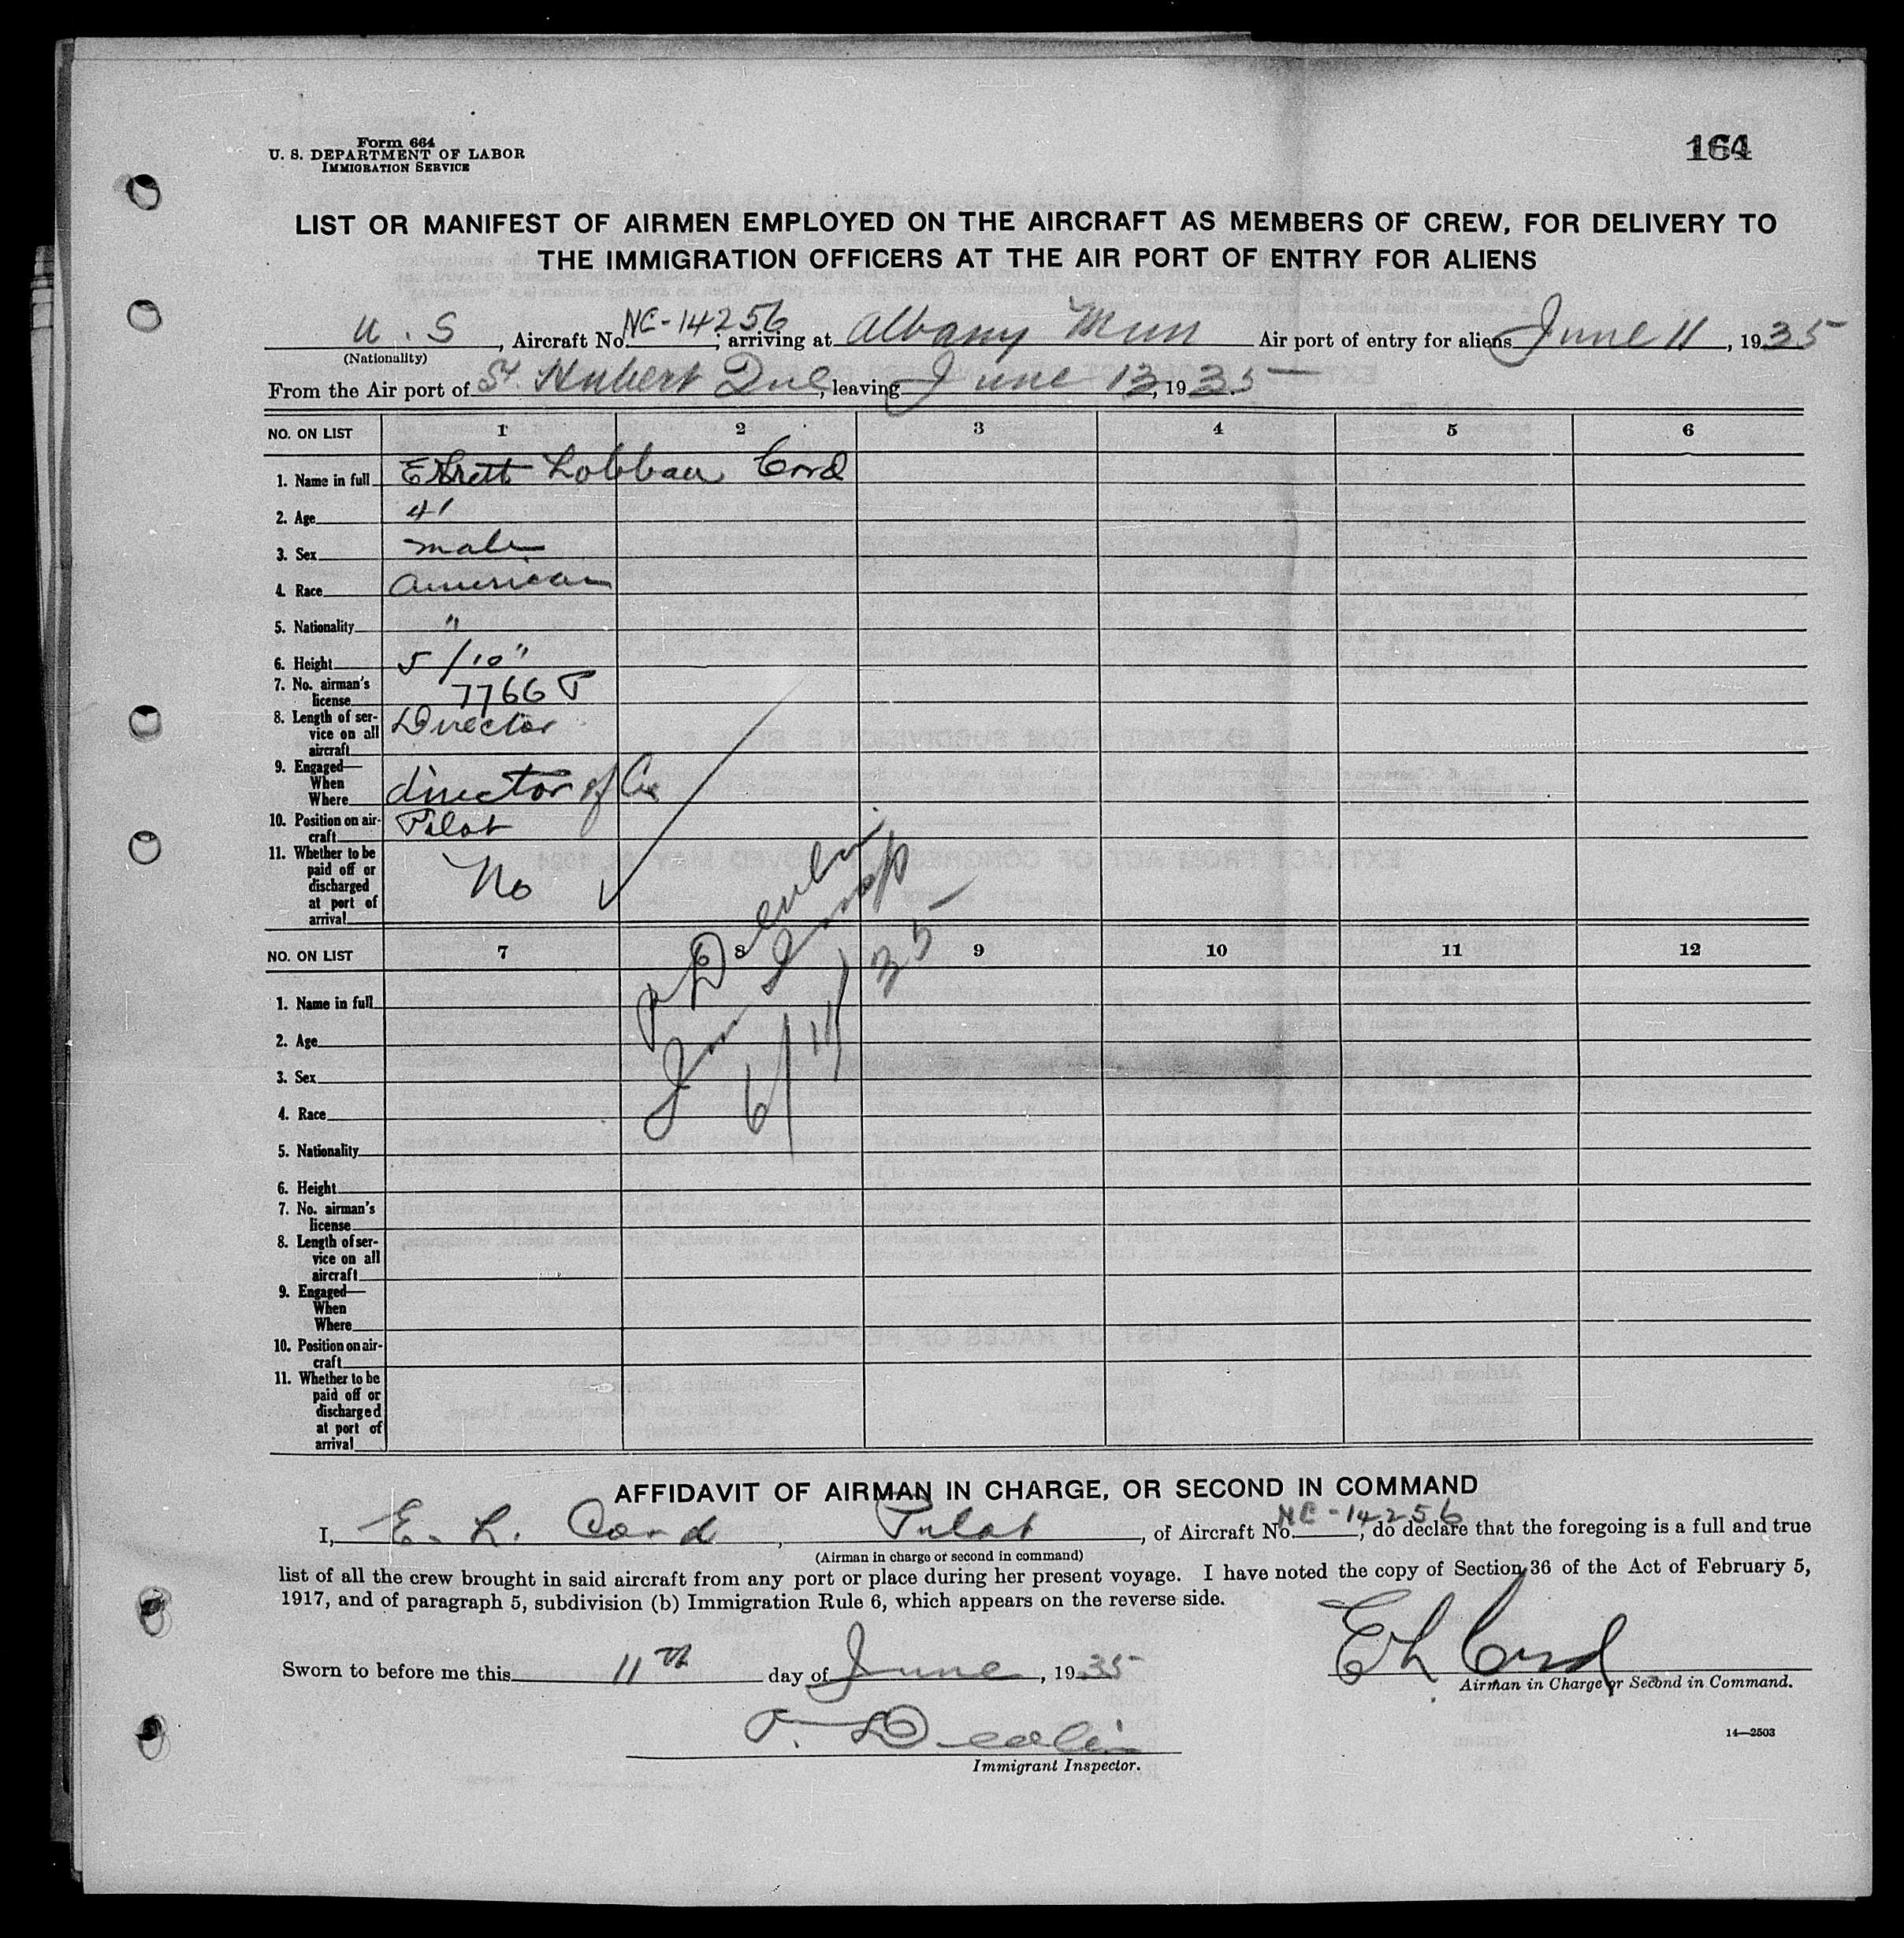 Form 664
U. S. DEPARTMENT OF LABOR
IMMIGRATION SERVICE
164
LIST OR MANIFEST OF AIRMEN EMPLOYED ON THE AIRCRAFT AS MEMBERS OF CREW, FOR DELIVERY TO
THE IMMIGRATION OFFICERS AT THE AIR PORT OF ENTRY FOR ALIENS
U. S, Aircraft No. NC-14256, arriving at Albany Mun Air port of entry for aliens June 11, 1935
(Nationality)
From the Air port of St. Hubert Que, leaving June 13, 1935
NO. ON LIST 1 2 3 4 5 6
1. Name in full Errett Lobban Cord
2. Age 41
3. Sex male
4. Race American
5. Nationality "
6. Height 5/10"
7. No. airman's
license 7766 T
8. Length of ser- Director
vice on all
aircraft
9. Engaged—
When
Where director of Co
10. Position on air- Pilot
craft
11. Whether to be
paid off or
discharged No
at port of
arrival
P Devlin
Imm Insp
6/11/35
NO. ON LIST 7 8 9 10 11 12
1. Name in full
2. Age
3. Sex
4. Race
5. Nationality
6. Height
7. No. airman's
license
8. Length of ser-
vice on all
aircraft
9. Engaged—
When
Where
10. Position on air-
craft
11. Whether to be
paid off or
discharged
at port of
arrival
AFFIDAVIT OF AIRMAN IN CHARGE, OR SECOND IN COMMAND
I, E. L. Cord, Pilot, of Aircraft No. NC-14256, do declare that the foregoing is a full and true
(Airman in charge or second in command)
list of all the crew brought in said aircraft from any port or place during her present voyage. I have noted the copy of Section 36 of the Act of February 5,
1917, and of paragraph 5, subdivision (b) Immigration Rule 6, which appears on the reverse side.
E L Cord
Sworn to before me this 11th day of June, 1935
Airman in Charge or Second in Command.
P. Devlin
14—2503
Immigrant Inspector.